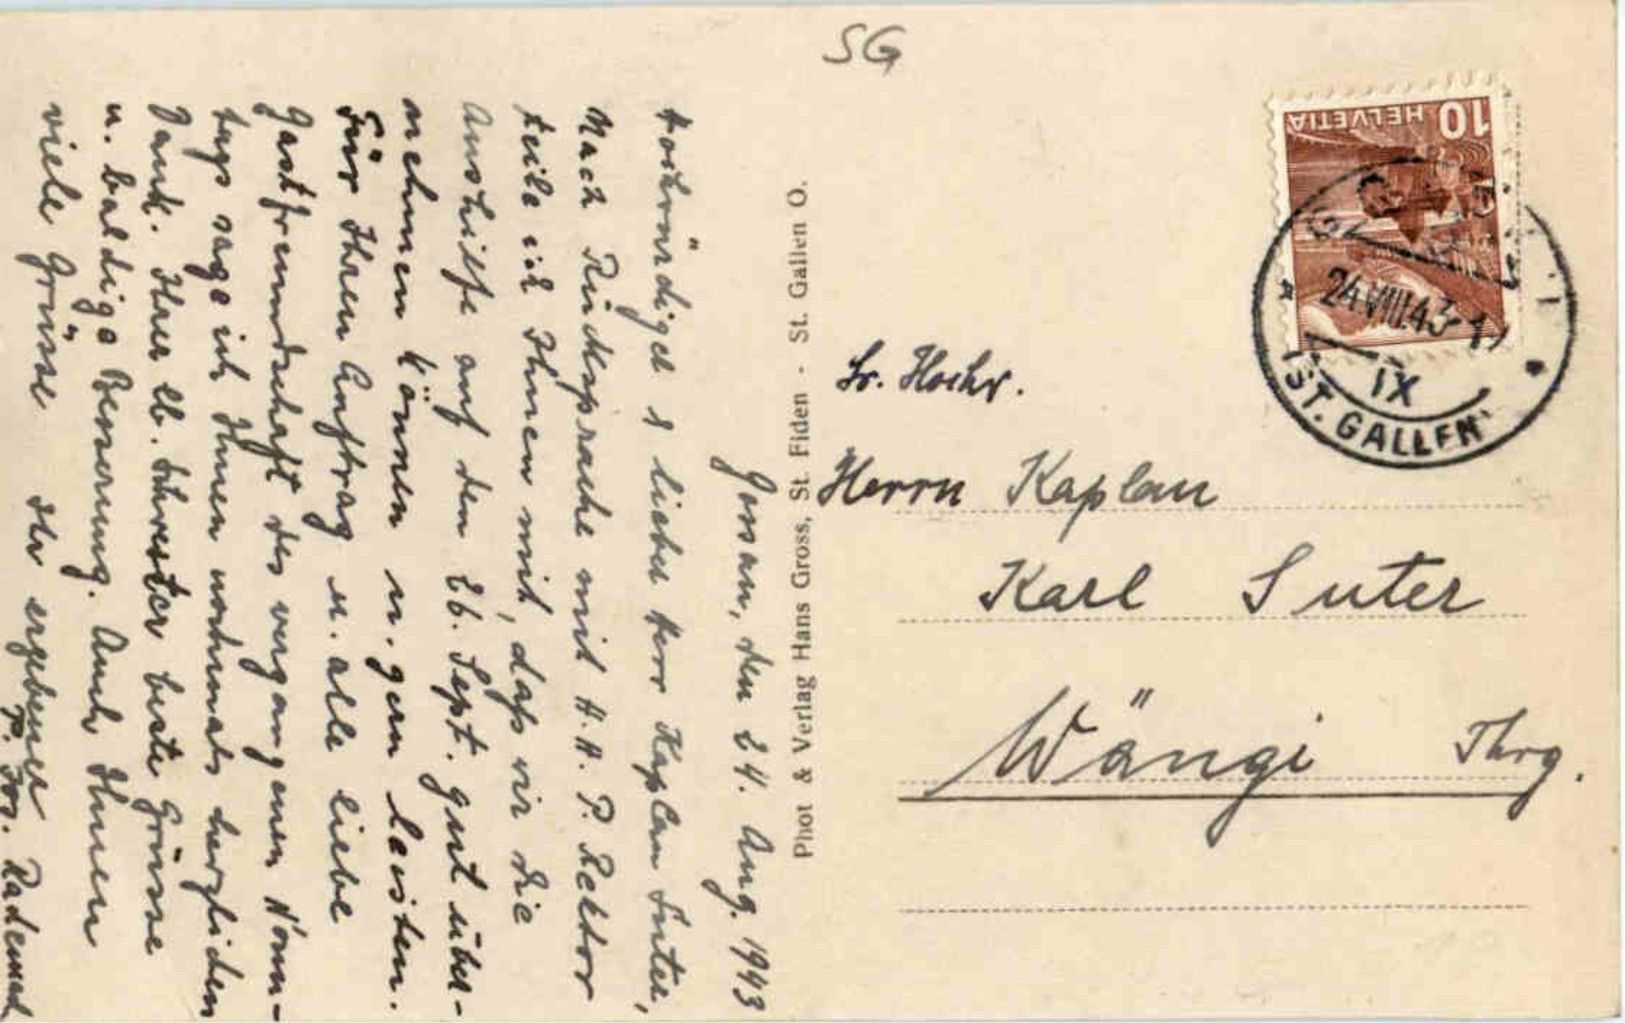 SG
HELVETIA 10
24.VIII.43
IX
ST. GALLEN
Sr. Hochw.
Herrn Kaplan
Karl Suter
Wängi Thrg.
Phot & Verlag Hans Gross, St. Fiden - St. Gallen O.
Gossau, den 24. Aug. 1943
Hochwürdiger & lieber Herr Kaplan Suter,
Nach Rücksprache mit H.H. P. Rektor
teile ich Ihnen mit, dass wir die
Aushilfe auf den 26. Sept. gut über-
nehmen können u. gern leisten.
Für Ihren Auftrag u. alle liebe
Gastfreundschaft des vergangenen Sonn-
tags sage ich Ihnen nochmals herzlichen
Dank. Ihrer lb. Schwester beste Grüsse
u. baldige Besserung. Auch Ihnen
viele Grüsse Ihr ergebener
P. Jos.